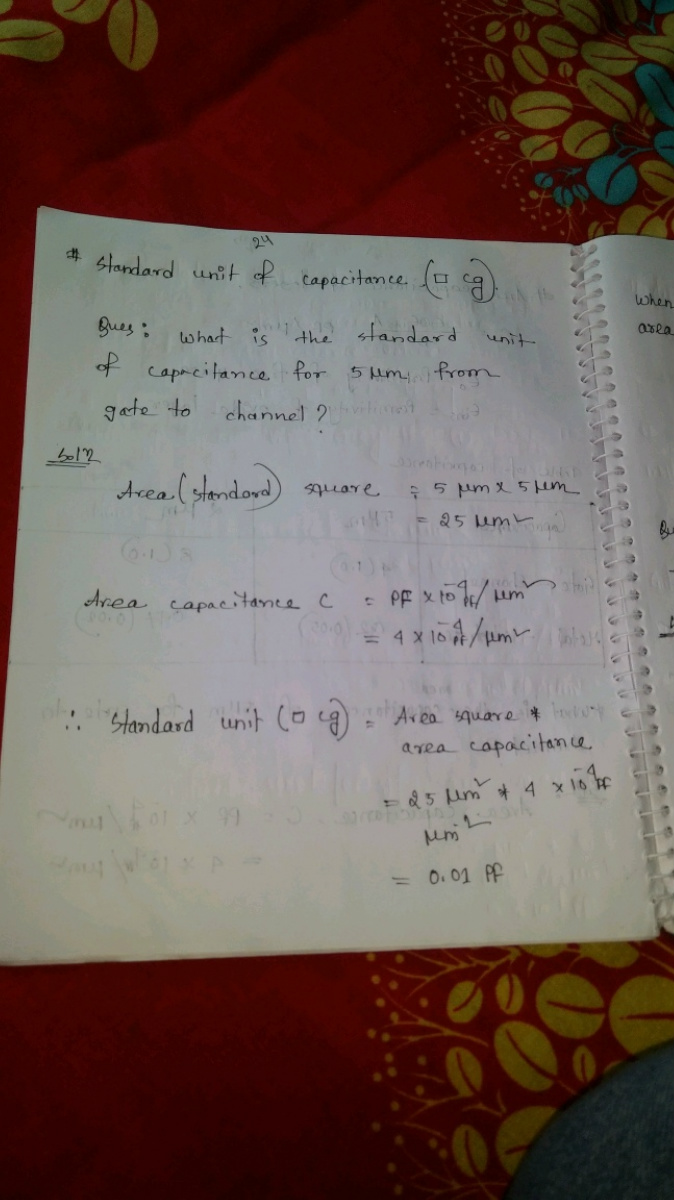 24
# Standard unit of capacitance (□ cg).
Ques: what is the standard unit
of capacitance for 5 μm, from
gate to channel?
Sol'n
Area (standard) square = 5 μm x 5 μm
= 25 μm²
Area capacitance C = PF x 10⁻⁴ PF/μm²
= 4 x 10⁻⁴ PF/μm²
∴ Standard unit (□ cg) = Area square *
area capacitance
= 25 μm² * 4 x 10⁻⁴ PF
μm²
= 0.01 PF
When
area